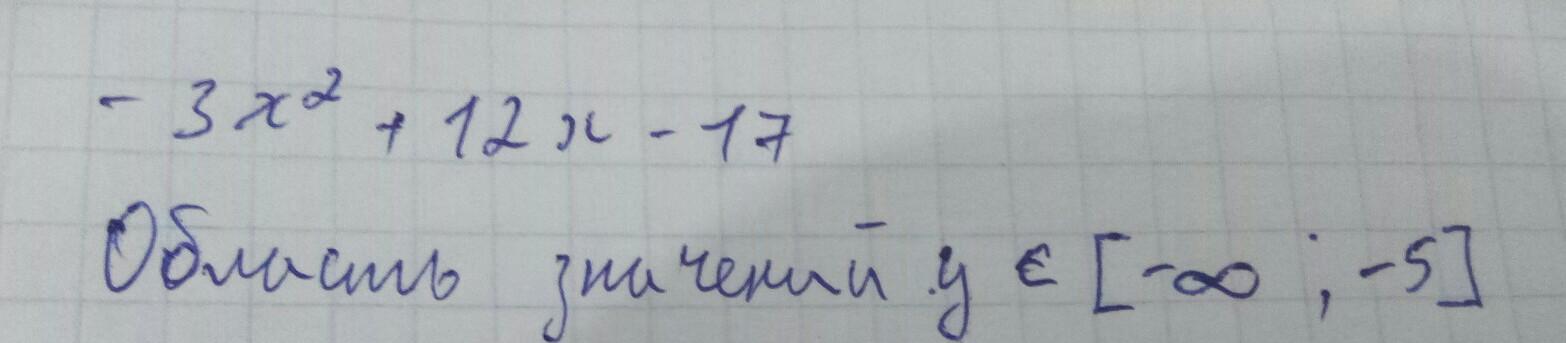 - 3x² + 12x - 17
Область значений y ∈ [-∞ ; -5]